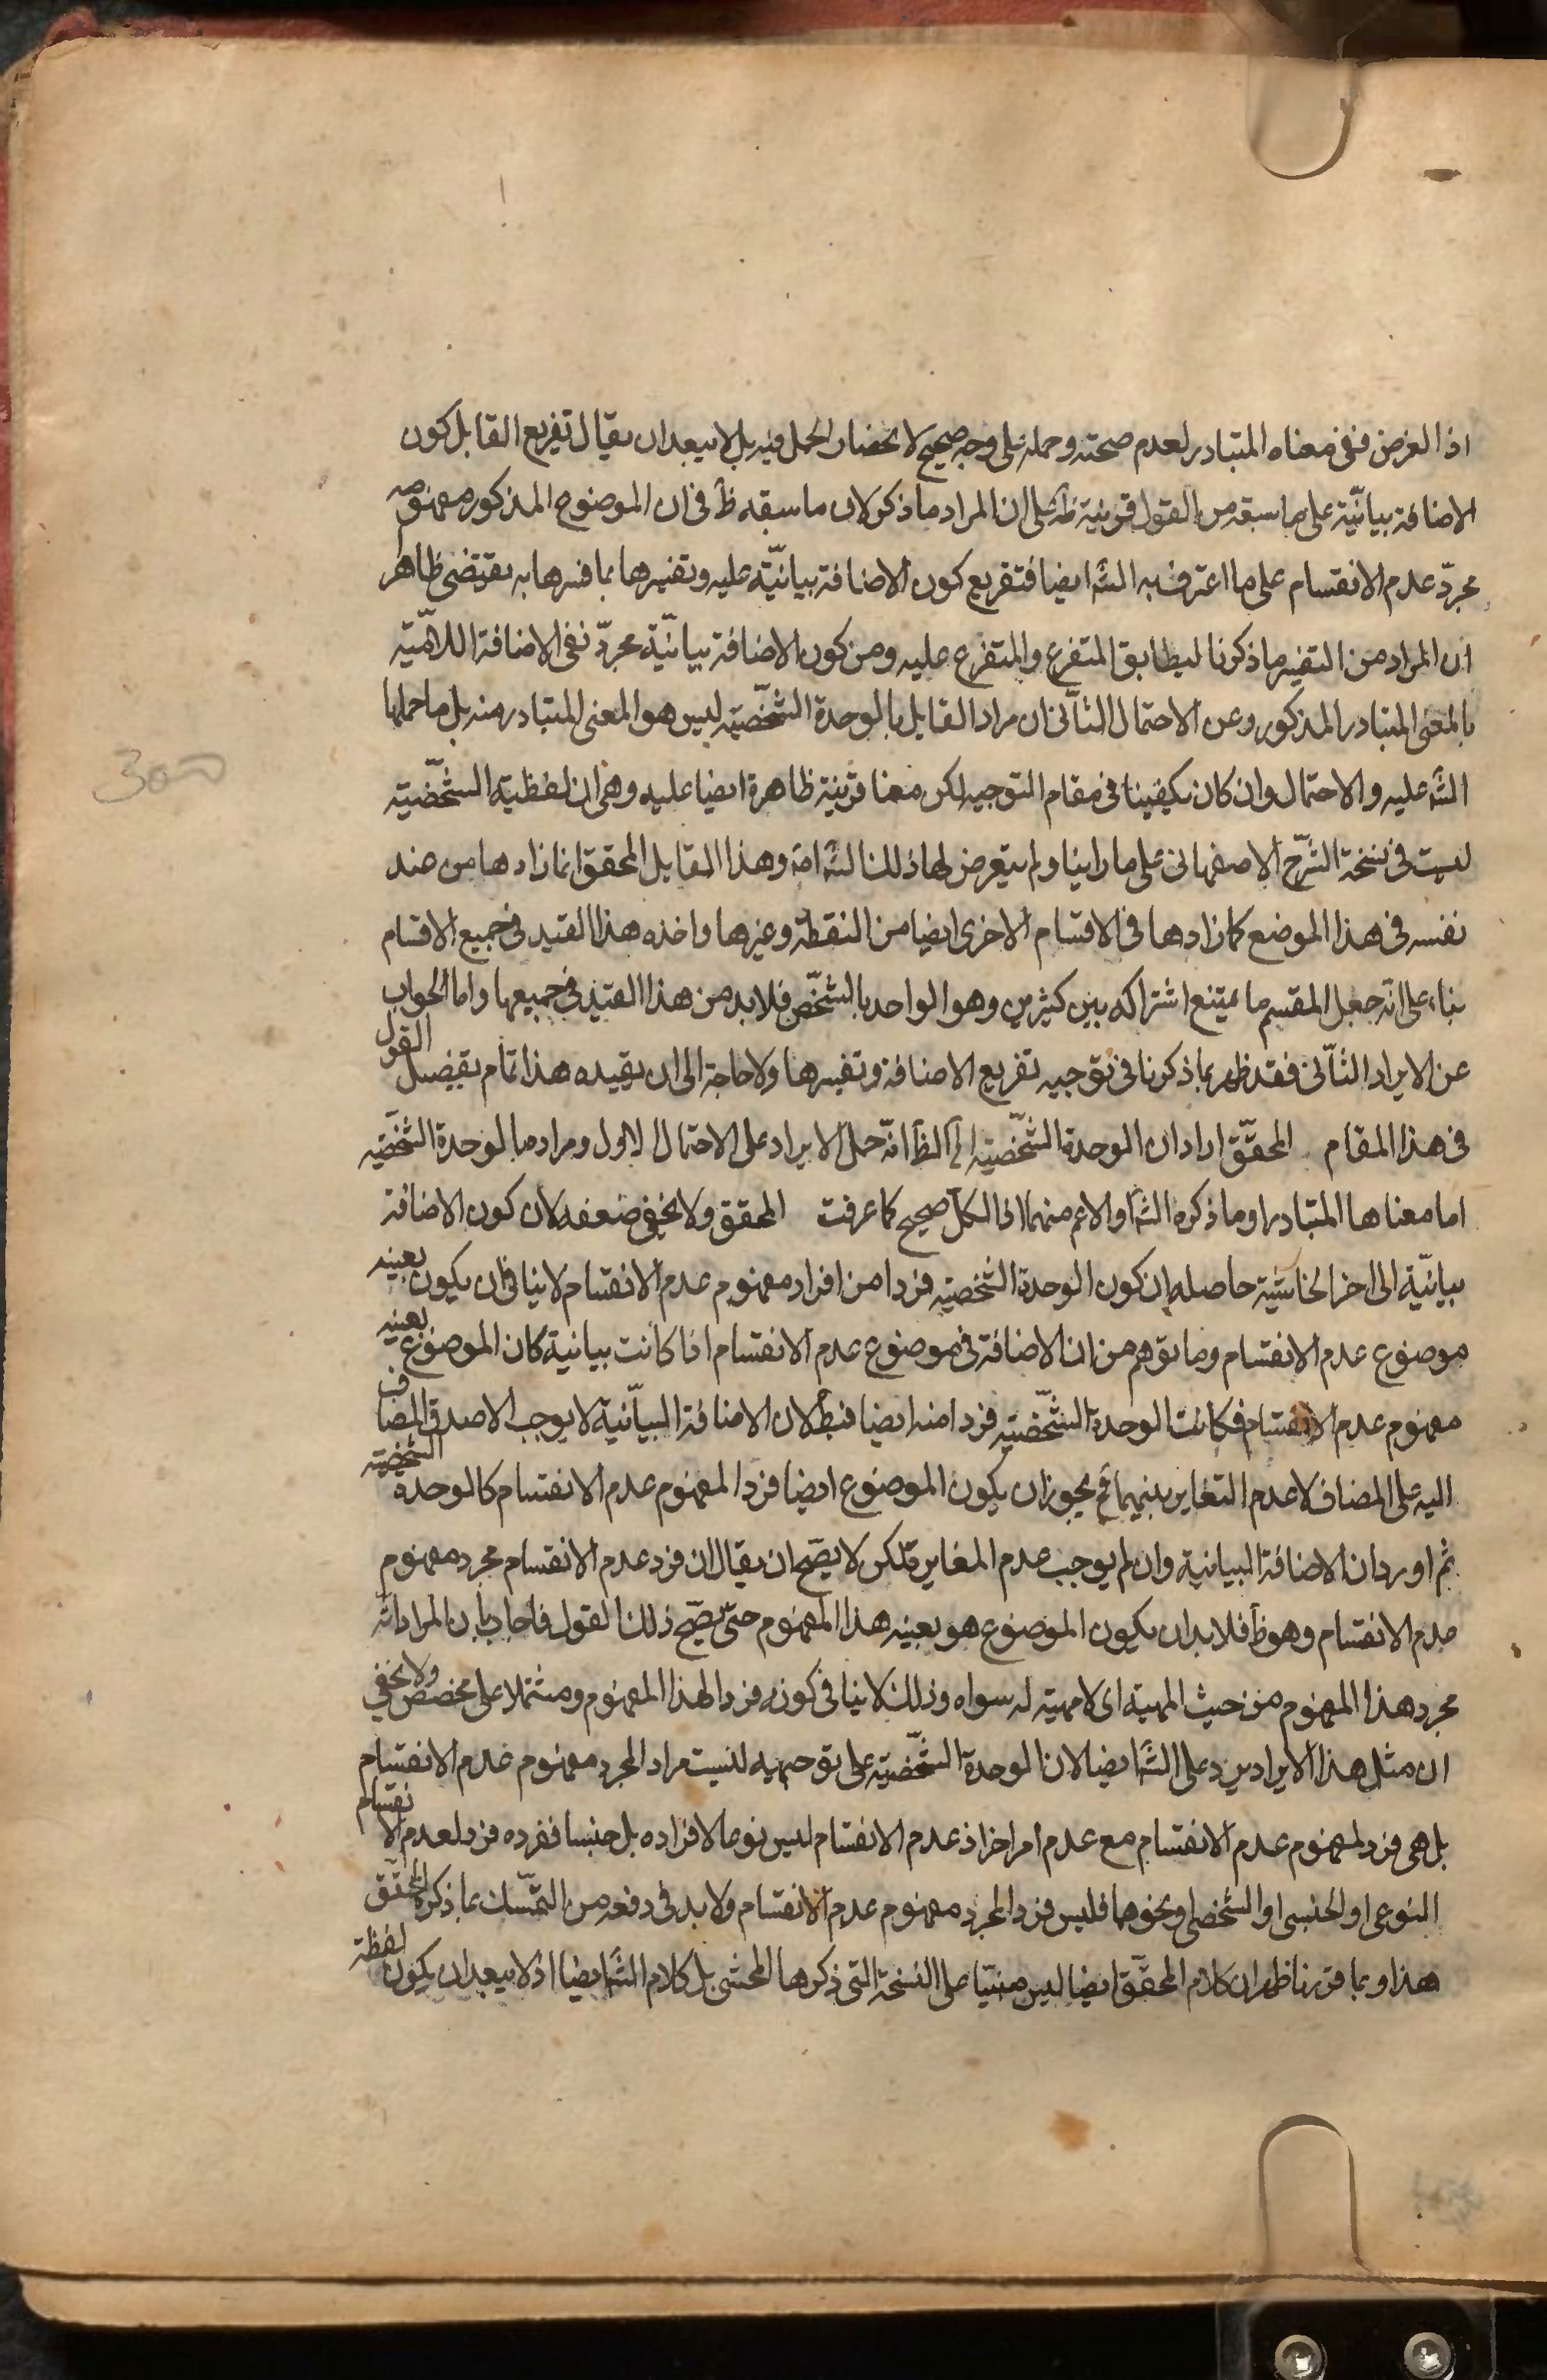 اذ الغرض نفى معناه المتبادر لعدم صحته وحمله على وجه صحيح لانحصار الحمل فيه بل لا يبعد ان يقال تفريع القايل كون
الاضافة بيانيّة على ما سبقه من القول قرينية ظَ على ان المراد ما ذكر لان ما سبقه ظَ فى ان الموضوع المذكور مفهومه
مجرّد عدم الانقسام على ما اعترف به الشَه ايضا فتفريع كون الاضافة بيانيّة عليه وتفسيرها بما فسرها به يقتضى ظاهر
ان المراد من التفسير ما ذكرنا ليطابق المتفرع والمتفرع عليه ومن كون الاضافة بيانيّة مجرّد نفى الاضافة اللاميّة
بالمعنى المتبادر المذكور وعن الاحتمال الثانى ان مراد القايل بالوحدة الشخصّية ليس هو المعنى المتبادر منه بل ما حملها
الشَه عليه والاحتمال وان كان يكفينا فى مقام التوجيه لكن معنا قرينة ظاهرة ايضا عليه وهى ان لفظية الشخصّية
ليست فى نسخة الشرح الاصفهانى على ما راينا ولم يتعرض لها ذلك الشَه امَه وهذا القايل المحقق انما زادها من عند
نفسه فى هذا الموضع كما زادها فى الاقسام الاخرى ايضا من النقطة وغيرها واخذه هذا القيد فى جميع الاقسام
بناء على انّه جعل المقسم ما يمتنع اشتراكه بين كثيرين وهو الواحد بالشخّص فلا بد من هذا القيد فى جميعها واما الجواب
عن الايراد الثانّى فقد ظهر بما ذكرنا فى توجيه تفريع الاضافة وتفسيرها ولا حاجة الى ان يقيده هذا تمام تفصيل القول
فى هذا المقام المحقّق اراد ان الوحدة الشخّصية الَخ الظَ انّه حمل الايراد على الاحتمال الاول ومراده بالوحدة الشخصّية
اما معناها المتبادر او ما ذكره الشَه او الاعم منهما اذ الكل صحيح كما عرفت المحقق ولا يخفى ضعفه لان كون الاضافة
بيانيّة الى اخر الحاشيّة حاصله ان كون الوحدة الشخصّية فردا من افراد مفهوم عدم الانقسام لا ينافى ان يكون بعينه
موضوع عدم الانقسام وما توهم من ان الاضافة فى موضوع عدم الانقسام اذا كانت بيانية كان الموضوع بعينه
مفهوم عدم الانقسام فكانت الوحدة الشخّصية فردا منه ايضا فبطَ لان الاضافة البيّانية لا يوجب الا صدق المضاف
اليه على المضاف لا عدم التغاير بينهما فَح يجوز ان يكون الموضوع ايضا فردا لمفهوم عدم الانقسام كالوحدة الشخصية
ثم اورد ان الاضافة البيانية وان لم يوجب عدم المغايرة لكن لا يصّح ان يقال ان فرد عدم الانقسام مجرد مفهوم
عدم الانقسام وهو ظَ فلا بد ان يكون الموضوع هو بعينه هذا المفهوم حتىّ يصّح ذلك القول فاجاب بان المراد انّه
مجرد هذا المفهوم من حيث المهية اى لا مهية له سواه وذلك لا ينافى كونه فردا لهذا المفهوم ومشتملا على مخصص ولا يخفى
ان مثل هذا الايراد يرد على الشَه ايضا لان الوحدة الشخّصية على توجيهه ليست مرادا لمجرد مفهوم عدم الانقسام
بل هى فرد لمفهوم عدم الانقسام مع عدم امر اخر اذ عدم الانقسام ليس نوعا لافراده بل جنسا ففرده فرد لعدم الانقسام
النوعى او الجنسى او الشخصى او نحوهما فليس فردا لمجرد مفهوم عدم الانقسام ولا بد فى دفعه من التمّسك بما ذكره المحّقق
هذا وبما قررنا ظهر ان كلام المحقّق ايضا ليس مبنيّا على النسخة التى ذكرها المحشى بل كلام الشَه ايضا اذ لا يبعد ان يكون لفظة